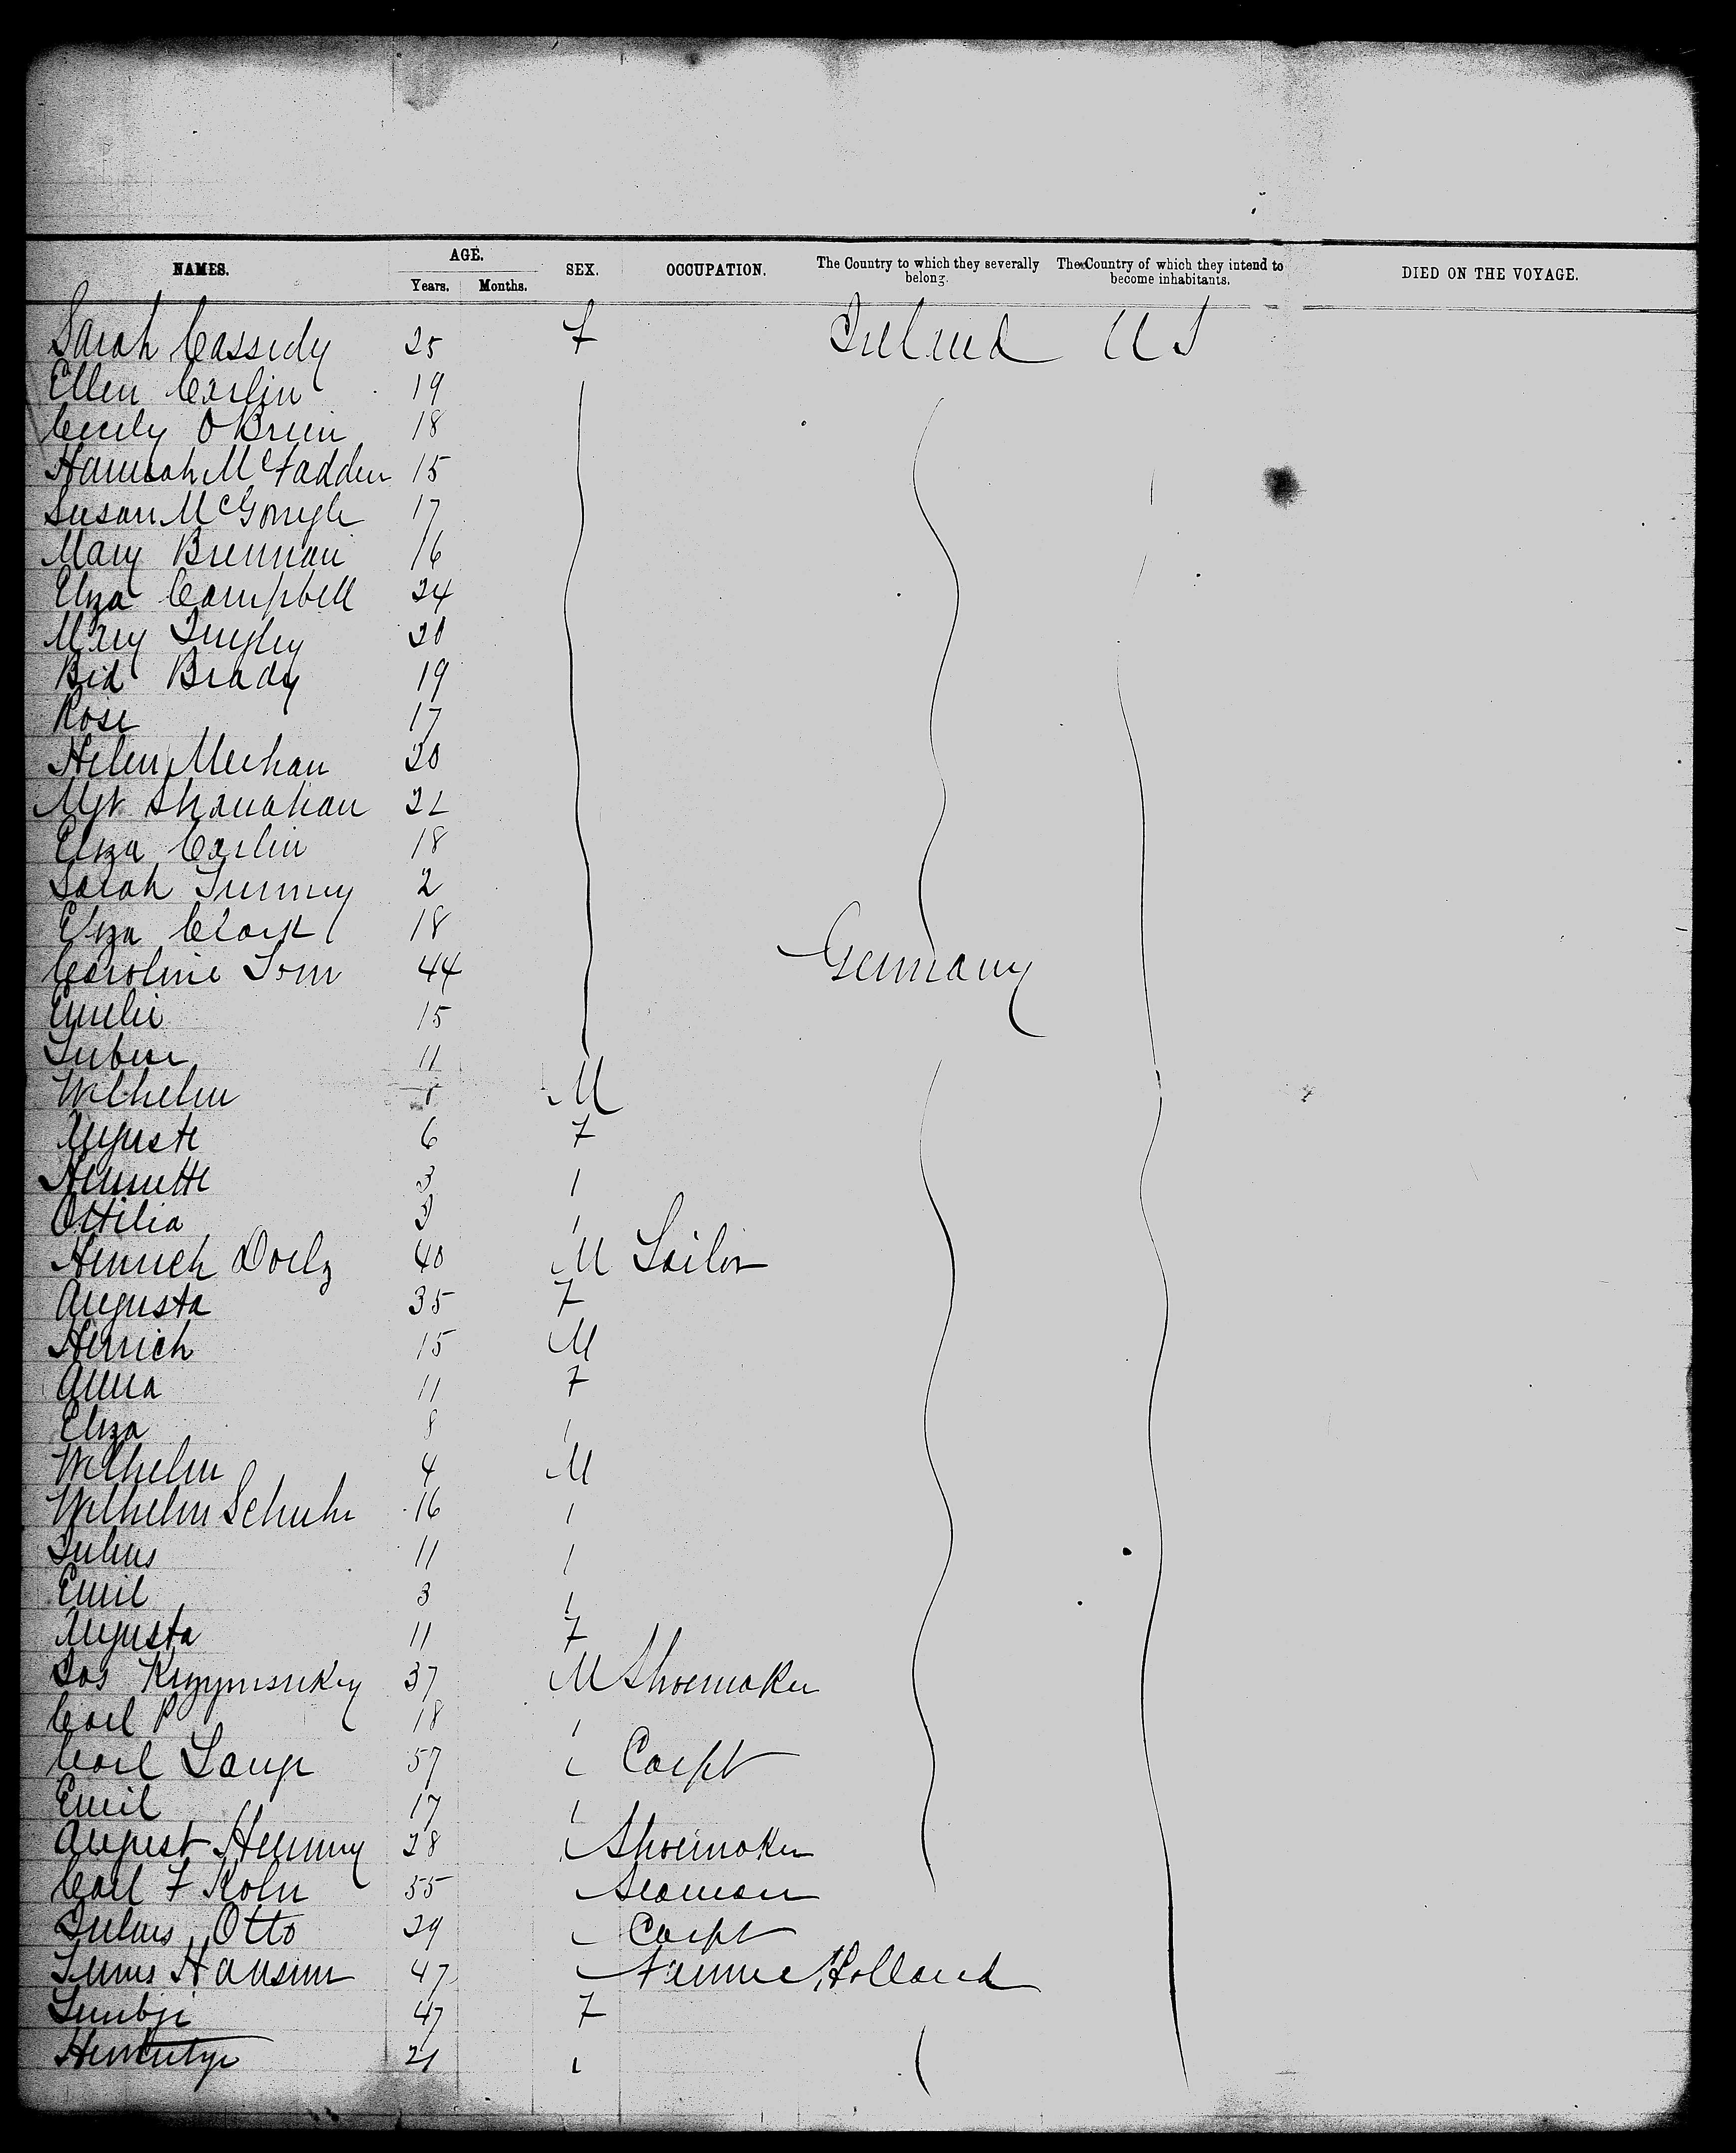 NAMES. AGE. Years. Months. SEX. OCCUPATION. The Country to which they severally belong. The Country of which they intend to become inhabitants. DIED ON THE VOYAGE.
Sarah Cassidy 25 F Ireland US
Ellen Carlin 19
Cecily O'Brien 18
Hannah McFadden 15
Susan McGonigle 17
Mary Brennan 16
Eliza Campbell 24
Mary 20
Bid Brady 19
Rose 17
Helen Meehan 20
Mgt Shanahan 22
Eliza Carlin 18
Sarah 2
Eliza Clark 18
Caroline 44 Germany
Emelie 15
11
Wilhelm M
Auguste 6 F
3 1
Ottilia 3 1
Heinrich 40 M Sailor
Augusta 35 F
Heinrich 15 M
Anna 11 F
Eliza 8 1
Wilhelm 4 M
Wilhelm 16 1
Julius 11 1
Emil 3 1
Augusta 11 F
Jos 37 M Shoemaker
Carl 18 1
Carl Lange 57 Carpt
Emil 17 1
August 28 Shoemaker
Carl F Kohn 55 Seaman
Julius Otto 29 Carpt
47 Holland
47 F
21